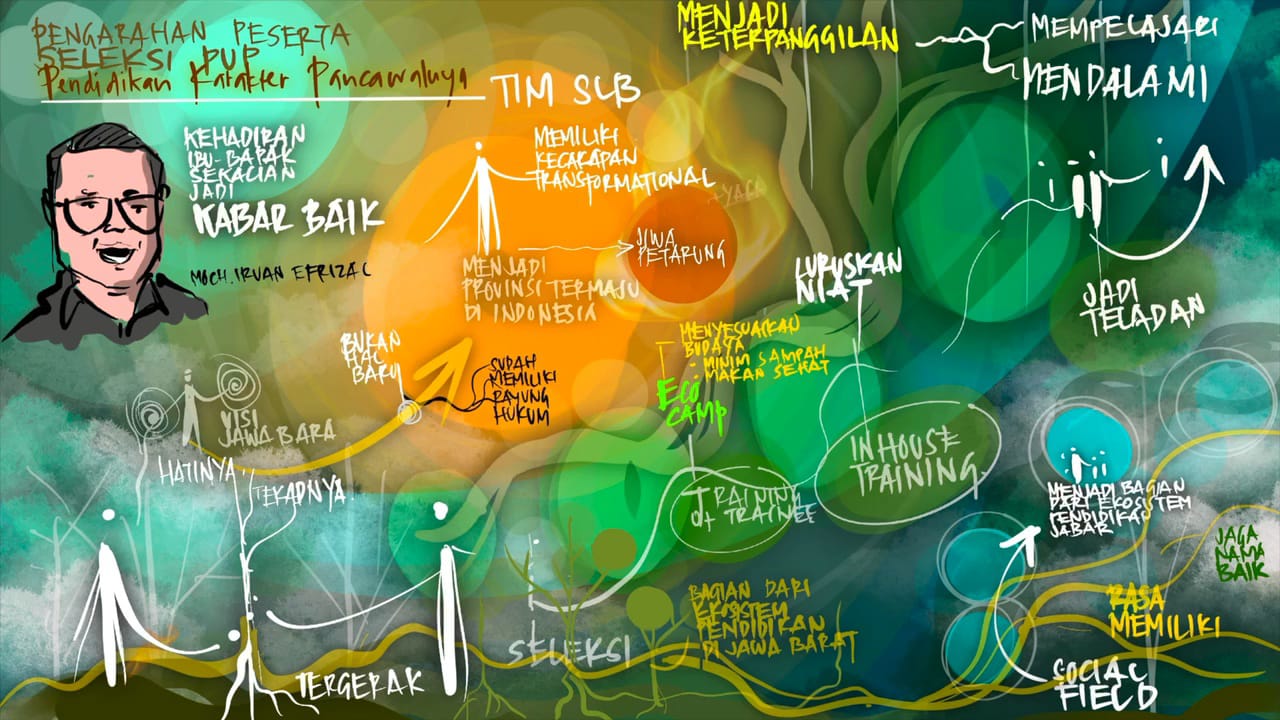 PENGARAHAN PESERTA
SELEKSI PUP
Pendidikan Karakter Pancawaluya
TIM SLB
KEHADIRAN
IBU-BAPAK
SEKALIAN
JADI
KABAR BAIK
MOCH. IRVAN EFRIZAL
MEMILIKI
KECAKAPAN
TRANSFORMATIONAL
MENJADI
PROVINSI TERMAJU
DI INDONESIA
JIWA
PETARUNG
MENJADI
KETERPANGGILAN
MEMPELAJARI
MENDALAMI
JADI
TELADAN
LURUSKAN
NIAT
BUKAN
HAL
BARU
SUDAH
MEMILIKI
PAYUNG
HUKUM
VISI
JAWA BARA
HATINYA..
TEKADNYA.
TERGERAK
MENYESUAIKAN
BUDAYA
• MINIM SAMPAH
• MAKAN SEHAT
ECO
CAMP
TRAINING
of TRAINEE
IN HOUSE
TRAINING
SELEKSI
BAGIAN DARI
EKOSISTEM
PENDIDIKAN
DI JAWA BARAT
MENJADI BAGIAN
DARI EKOSISTEM
PENDIDIKAN
JABAR
JAGA
NAMA
BAIK
RASA
MEMILIKI
SOCIAL
FIELD